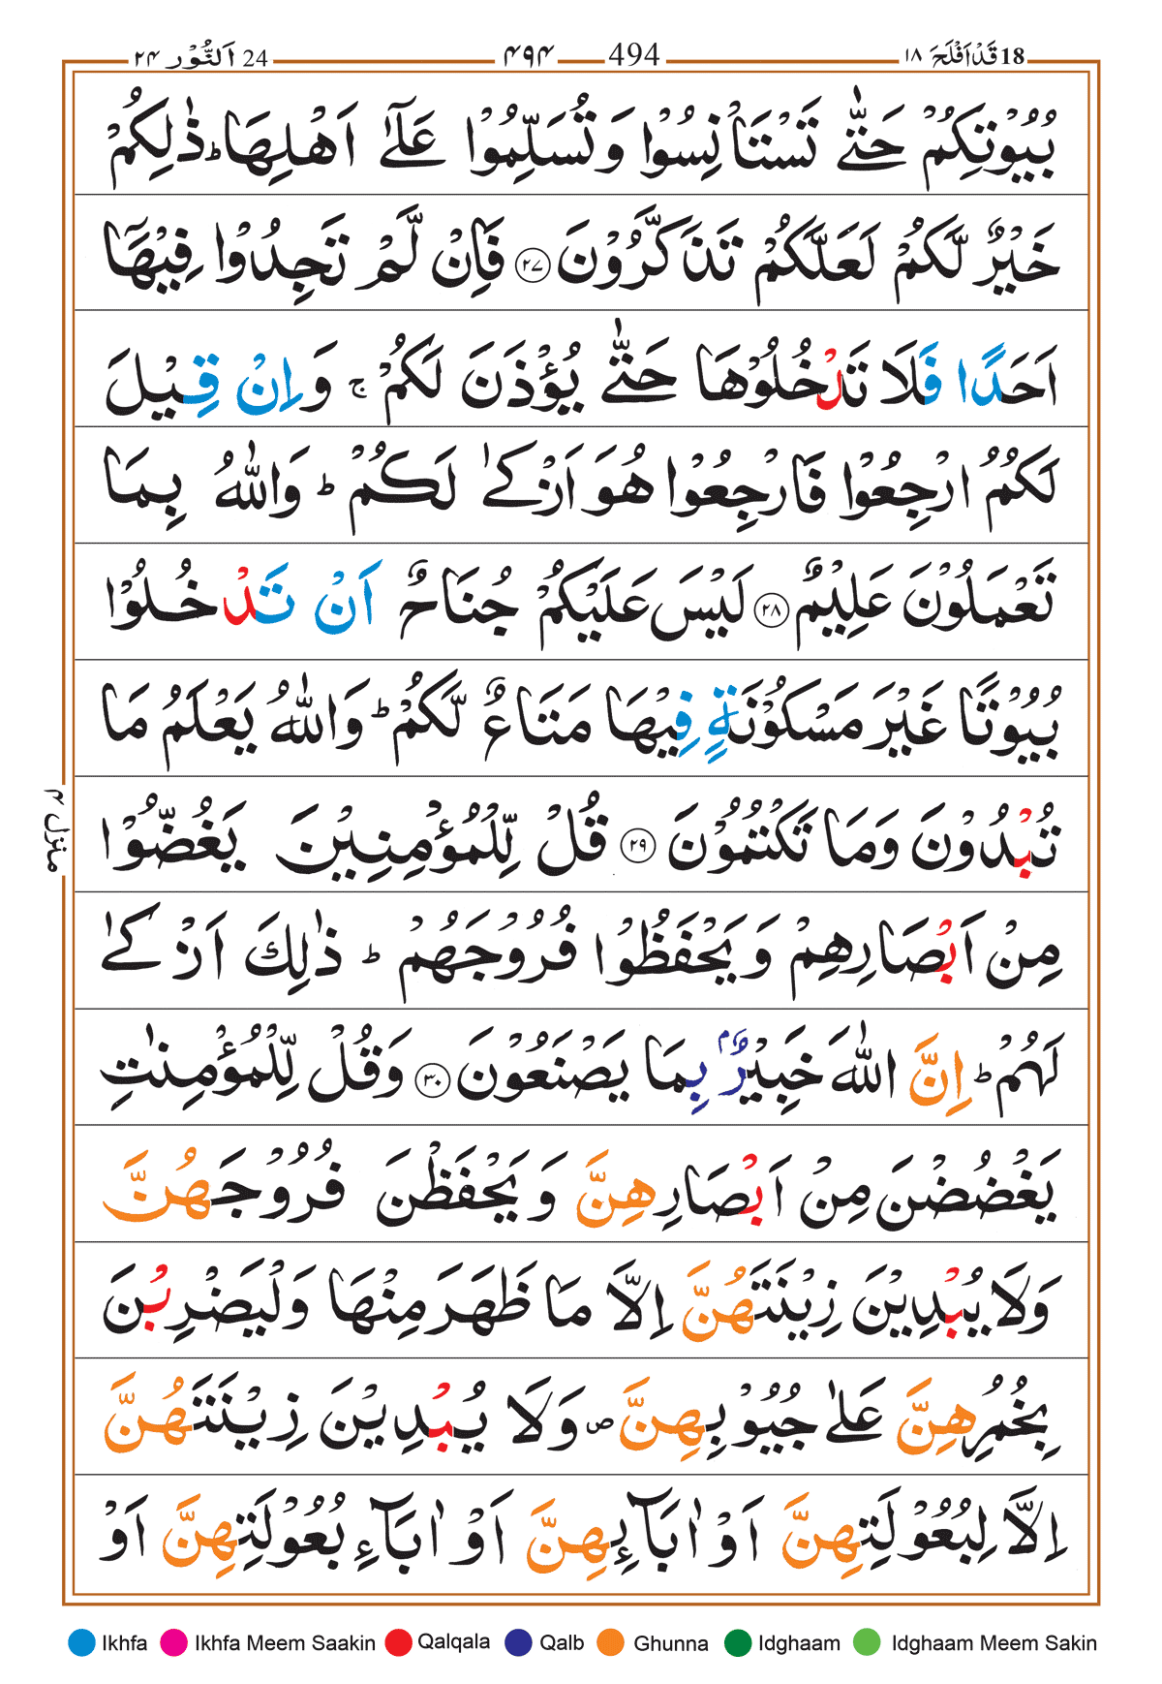 ٢٤ اَلنُّوْر 24 ۴۹۴ 494 18 قَدْ اَفْلَحَ ١٨
بُيُوْتِكُمْ حَتّٰى تَسْتَاْنِسُوْا وَ تُسَلِّمُوْا عَلٰۤى اَهْلِهَا ؕ ذٰلِكُمْ
خَيْرٌ لَّكُمْ لَعَلَّكُمْ تَذَكَّرُوْنَ ﴿۲۷﴾ فَاِنْ لَّمْ تَجِدُوْا فِيْهَاۤ
اَحَدًا فَلَا تَدْخُلُوْهَا حَتّٰى يُؤْذَنَ لَكُمْ ۚ وَ اِنْ قِيْلَ
لَكُمُ ارْجِعُوْا فَارْجِعُوْا هُوَ اَزْكٰى لَكُمْ ؕ وَاللّٰهُ بِمَا
تَعْمَلُوْنَ عَلِيْمٌ ﴿۲۸﴾ لَيْسَ عَلَيْكُمْ جُنَاحٌ اَنْ تَدْخُلُوْا
بُيُوْتًا غَيْرَ مَسْكُوْنَةٍ فِيْهَا مَتَاعٌ لَّكُمْ ؕ وَاللّٰهُ يَعْلَمُ مَا
تُبْدُوْنَ وَمَا تَكْتُمُوْنَ ﴿۲۹﴾ قُلْ لِّلْمُؤْمِنِيْنَ يَغُضُّوْا
مِنْ اَبْصَارِهِمْ وَيَحْفَظُوْا فُرُوْجَهُمْ ؕ ذٰلِكَ اَزْكٰى
لَهُمْ ؕ اِنَّ اللّٰهَ خَبِيْرٌۢ بِمَا يَصْنَعُوْنَ ﴿۳۰﴾ وَقُلْ لِّلْمُؤْمِنٰتِ
يَغْضُضْنَ مِنْ اَبْصَارِهِنَّ وَيَحْفَظْنَ فُرُوْجَهُنَّ
وَلَا يُبْدِيْنَ زِيْنَتَهُنَّ اِلَّا مَا ظَهَرَ مِنْهَا وَلْيَضْرِبْنَ
بِخُمُرِهِنَّ عَلٰى جُيُوْبِهِنَّ ص وَلَا يُبْدِيْنَ زِيْنَتَهُنَّ
اِلَّا لِبُعُوْلَتِهِنَّ اَوْ اٰبَآئِهِنَّ اَوْ اٰبَآءِ بُعُوْلَتِهِنَّ اَوْ
منزل ۴
Ikhfa Ikhfa Meem Saakin Qalqala Qalb Ghunna Idghaam Idghaam Meem Sakin